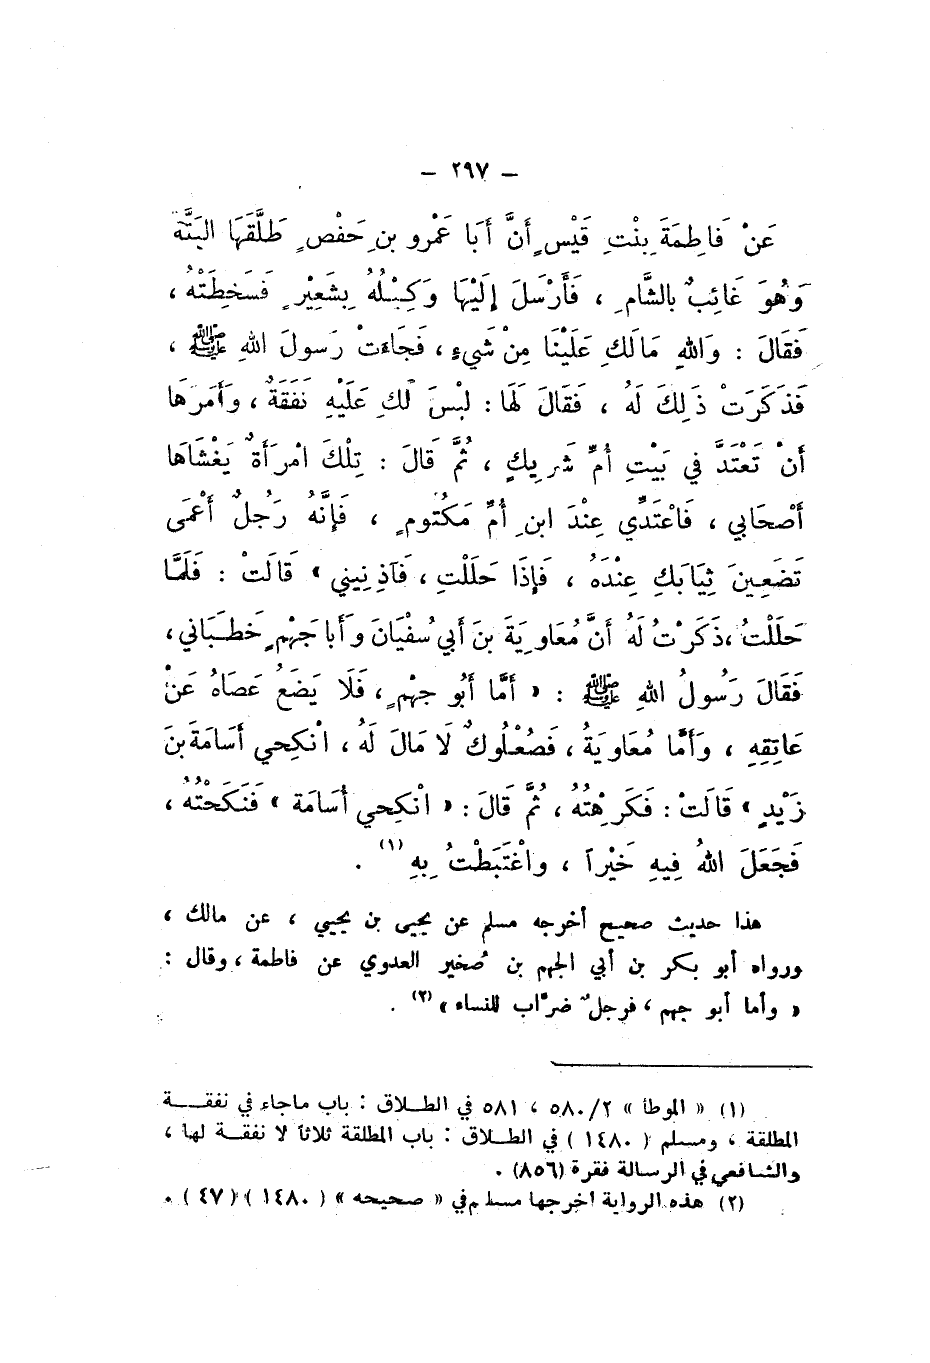 – ٢٩٧ –
عَنْ فَاطِمَةَ بِنْتِ قَيْسٍ أَنَّ أَبَا عَمْرِو بنِ حَفْصٍ طَلَّقَهَا البَتَّةَ
وَهُوَ غَائِبٌ بالشَّامِ ، فَأَرْسَلَ إِلَيْهَا وَكِيْلُهُ بِشَعِيْرٍ فَسَخِطَتْهُ ،
فَقَالَ : وَاللهِ مَالَكِ عَلَيْنَا مِنْ شَيءٍ ، فَجَاءَتْ رَسولَ اللهِ ﷺ ،
فَذَكَرَتْ ذَلِكَ لَهُ ، فَقَالَ لَهَا : لَيْسَ لَكِ عَلَيْهِ نَفَقَةٌ ، وأَمَرَهَا
أَنْ تَعْتَدَّ في بَيْتِ أُمِّ شَرِيكٍ ، ثُمَّ قَالَ : تِلْكَ امْرَأَةٌ يَغْشَاهَا
أَصْحَابي ، فَاعْتَدِّي عِنْدَ ابنِ أُمِّ مَكتُومٍ ، فَإِنَّهُ رَجُلٌ أَعْمَى
تَضَعِينَ ثِيَابَكِ عِنْدَهُ ، فَإِذَا حَلَلْتِ ، فَآذِنِيني » قَالَتْ : فَلَمَّا
حَلَلْتُ ، ذَكَرْتُ لَهُ أَنَّ مُعَاوِيَةَ بنَ أَبي سُفْيَانَ وأَبا جَهْمٍ خَطَبَاني ،
فَقَالَ رَسُولُ اللهِ ﷺ : « أَمَّا أَبُو جهْمٍ ، فَلَا يَضَعُ عَصَاهُ عَنْ
عَاتِقِهِ ، وَأَمَّا مُعَاوِيَةُ ، فَصُعْلُوكٌ لَا مَالَ لَهُ ، انْكِحي أُسَامَةَ بنَ
زَيْدٍ » قَالَتْ : فَكَرِهْتُهُ ، ثُمَّ قَالَ : « انْكِحي أُسَامَة » فَنَكَحْتُهُ ،
فَجَعَلَ اللهُ فِيهِ خَيْراً ، واغْتَبَطْتُ بِهِ (١) .
هذا حديث صحيح أخرجه مسلم عن يحيى بن يحيي ، عن مالك ،
ورواه أبو بكر بن أبي الجهم بن صُخير العدوي عن فاطمة ، وقال :
« وأما أبو جهم ، فرجلٌ ضرَّاب للنساء » (٢) .
(١) « الموطأ » ٥٨٠/٢ ، ٥٨١ في الطلاق : باب ماجاء في نفقة
المطلقة ، ومسلم ( ١٤٨٠ ) في الطلاق : باب المطلقة ثلاثاً لا نفقة لها ،
والشافعي في الرسالة فقرة (٨٥٦) .
(٢) هذه الرواية أخرجها مسلم في « صحيحه » ( ١٤٨٠ ) ( ٤٧ ) .